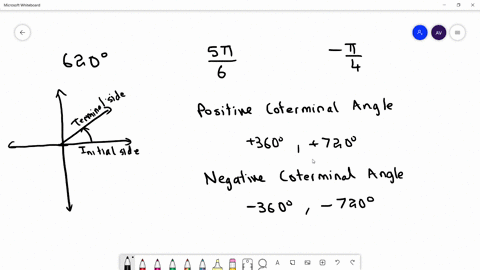 Microsoft Whiteboard
AV
620°
5π/6
-π/4
Terminal side
Initial side
Positive Coterminal Angle
+360°, +720°
Negative Coterminal Angle
-360°, -720°